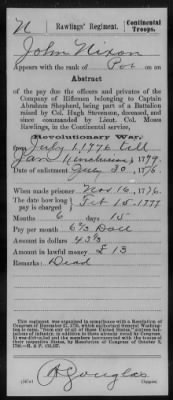 N | Rawlings' Regiment. | Continental Troops.
John Nixon
Appears with the rank of Pvt on an
Abstract
of the pay due the officers and privates of the
Company of Riflemen belonging to Captain
Abraham Shepherd, being part of a Battalion
raised by Col. Hugh Stevenson, deceased, and
since commanded by Lieut. Col. Moses
Rawlings, in the Continental service,
Revolutionary War,
from July 1, 1776 till
Jan 1 (inclusive), 1779.
Date of enlistment July 30, 1776.
When made prisoner Nov 16, 1776.
The date how long pay is charged } Feb 15, 1777
Months 6 days 15
Pay per month 6⅔ Doll
Amount in dollars 43⅓
Amount in lawful money £ 13
Remarks: Dead
This regiment was organized in compliance with a Resolution of
A Douglas
Copyist.